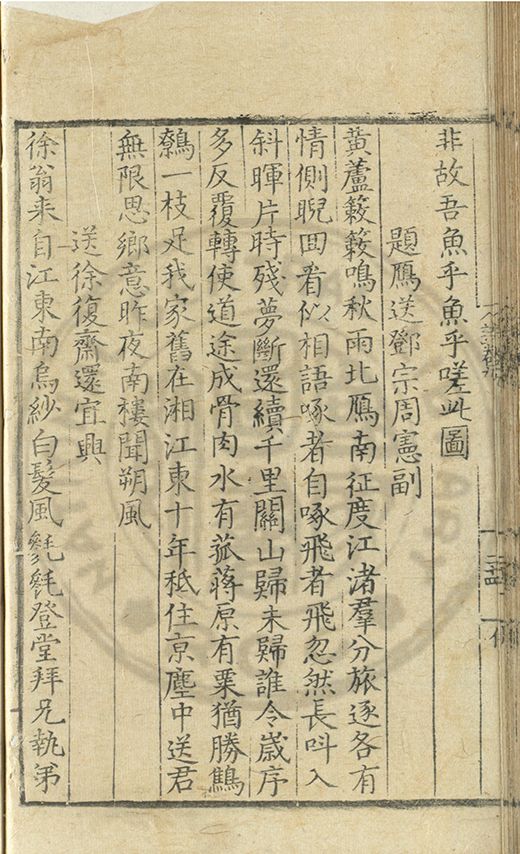 非故吾魚乎魚乎嗟此圖
題鴈送鄧宗周憲副
黄蘆簌簌鳴秋雨北鴈南征度江渚羣分旅逐各有
情側睨回看似相語啄者自啄飛者飛忽然長呌入
斜暉片時殘夢斷還續千里關山歸未歸誰令歲序
多反覆轉使道途成骨肉水有菰蔣原有粟猶勝鷦
鷯一枝足我家舊在湘江東十年秪住京塵中送君
無限思鄉意昨夜南樓聞朔風
送徐復齋還宜興
徐翁来自江東南烏紗白髮風毿毿登堂拜兄執弟